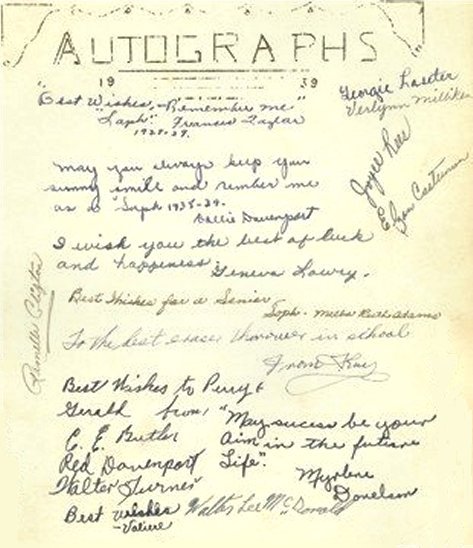 AUTOGRAPHS
19 39
"Best Wishes, - Remember me"
"Soph" Frances Taylor
1938-39.
Georgie Laseter
Verlynn Milliken
Joyce Lee
May you always keep your
sunny smile and rember me
as a "Soph 1938-39.
Callie Davenport
I wish you the best of luck
and happiness.
Geneva Lowry.
Best Wishes for a Senior
Soph - Melba Ruth Adams
To the best eraser thrower in school
From Kay
Best Wishes to Perry &
Gerald from:
C. E. Butler
Red Davenport
Walter Turner
"May sucess be your
aim in the future
Life".
Myrlene
Donelson
Best Wishes
- Valiere
Walter Lee McDonald